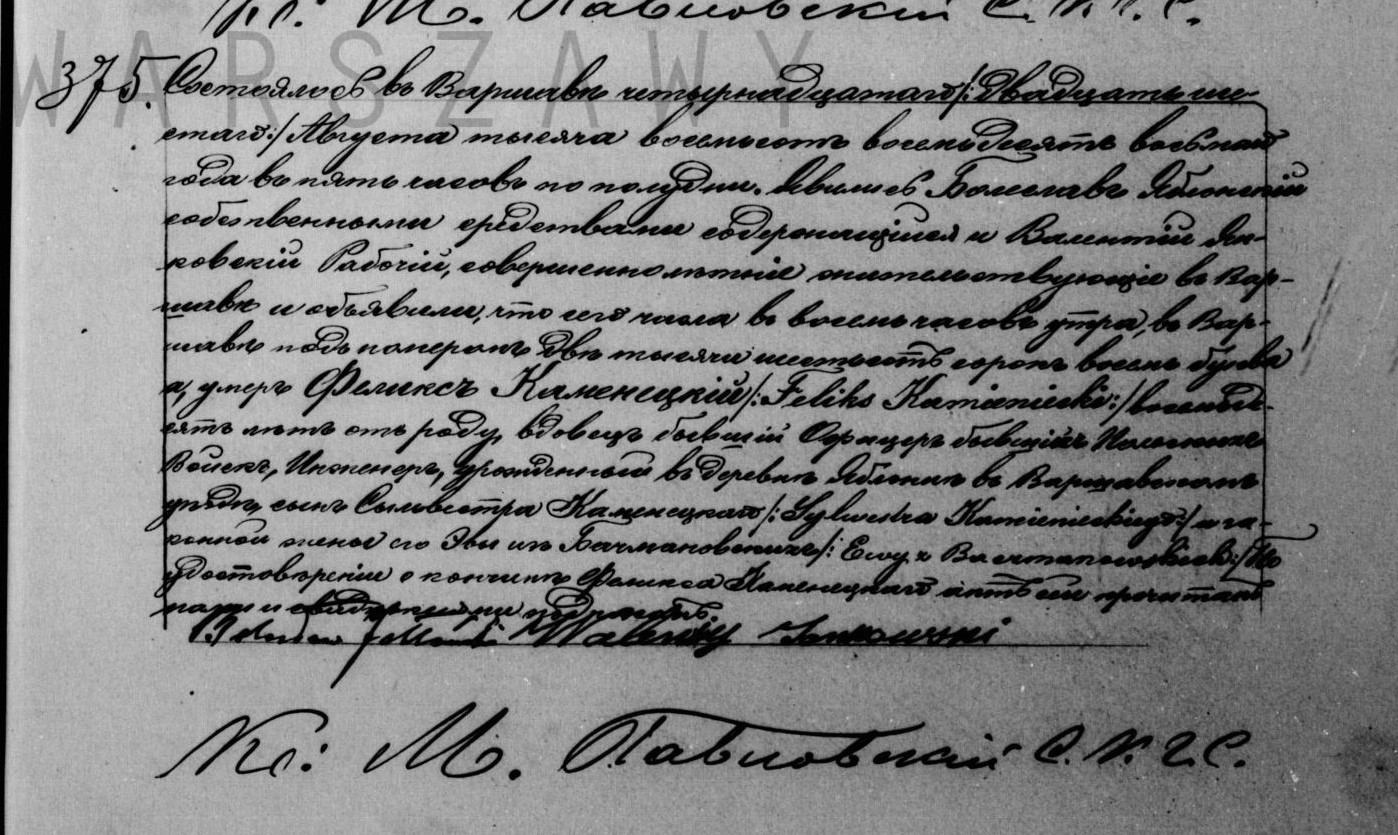 Кс: М. Павловскій С. К. Г. С.
WARSZAWY
375. Состоялось въ Варшавѣ четырнадцатаго /: двадцать ше-
стаго :/ Августа тысяча восемьсотъ восемьдесятъ восьмаго
года въ пять часовъ по полудни. Явились Болеславъ Яблонскій
собственными средствами содержащійся и Валентій Ян-
ковскій Рабочій, совершеннолѣтніе жительствующіе въ Вар-
шавѣ и объявили, что сего числа въ восемь часовъ утра, въ Вар-
шавѣ подъ номеромъ двѣ тысячи шестьсотъ сорокъ восемь буква
а, умеръ Феликсъ Каменецкій /: Feliks Kamieniecki :/ восемьде-
сятъ лѣтъ отъ роду, вдовецъ бывшій Офицеръ бывшихъ Польскихъ
Войскъ, Инженеръ, урожденный въ деревнѣ въ Варшавскомъ
уѣздѣ, сынъ Сыльвестра Каменецкаго /: Sylwestra Kamienieckiego :/ и за-
конной жены его Эвы изъ Бачмановскихъ /: Ewy z :/ По
удостовѣреніи о кончинѣ Феликса Каменецкаго актъ сей прочитанъ
нами и свидѣтелями подписанъ.
Walenty Jankowski
Кс: М. Павловскій С. К. Г. С.